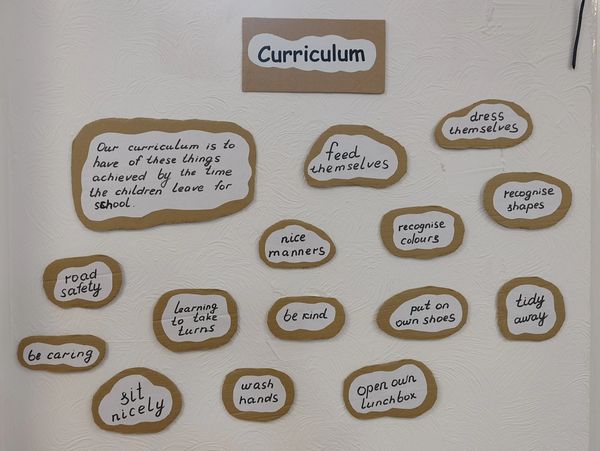 Curriculum
Our curriculum is to
have of these things
achieved by the time
the children leave for
school.
feed
themselves
dress
themselves
recognise
shapes
nice
manners
recognise
colours
road
safety
learning
to take
turns
be kind
put on
own shoes
tidy
away
be caring
sit
nicely
wash
hands
open own
lunchbox